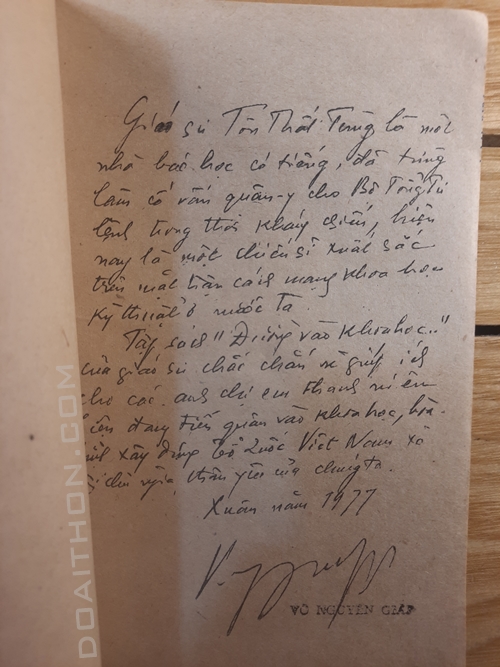 Giáo sư Tôn Thất Tùng là một
nhà bác học có tiếng, đã từng
làm cố vấn quân-y cho Bộ Tổng Tư
lệnh trong thời kháng chiến, hiện
nay là một chiến sĩ xuất sắc
trên mặt trận cách mạng khoa học
kỹ thuật ở nước ta.
Tập sách "Đường vào khoa học.."
của giáo sư chắc chắn sẽ giúp ích
cho các anh chị em thanh niên
hiện đang tiến quân vào khoa học,
xây dựng Tổ Quốc Việt Nam xã
hội chủ nghĩa thân yêu của chúng ta.
Xuân năm 1977
VÕ NGUYÊN GIÁP
DOAITHON.COM